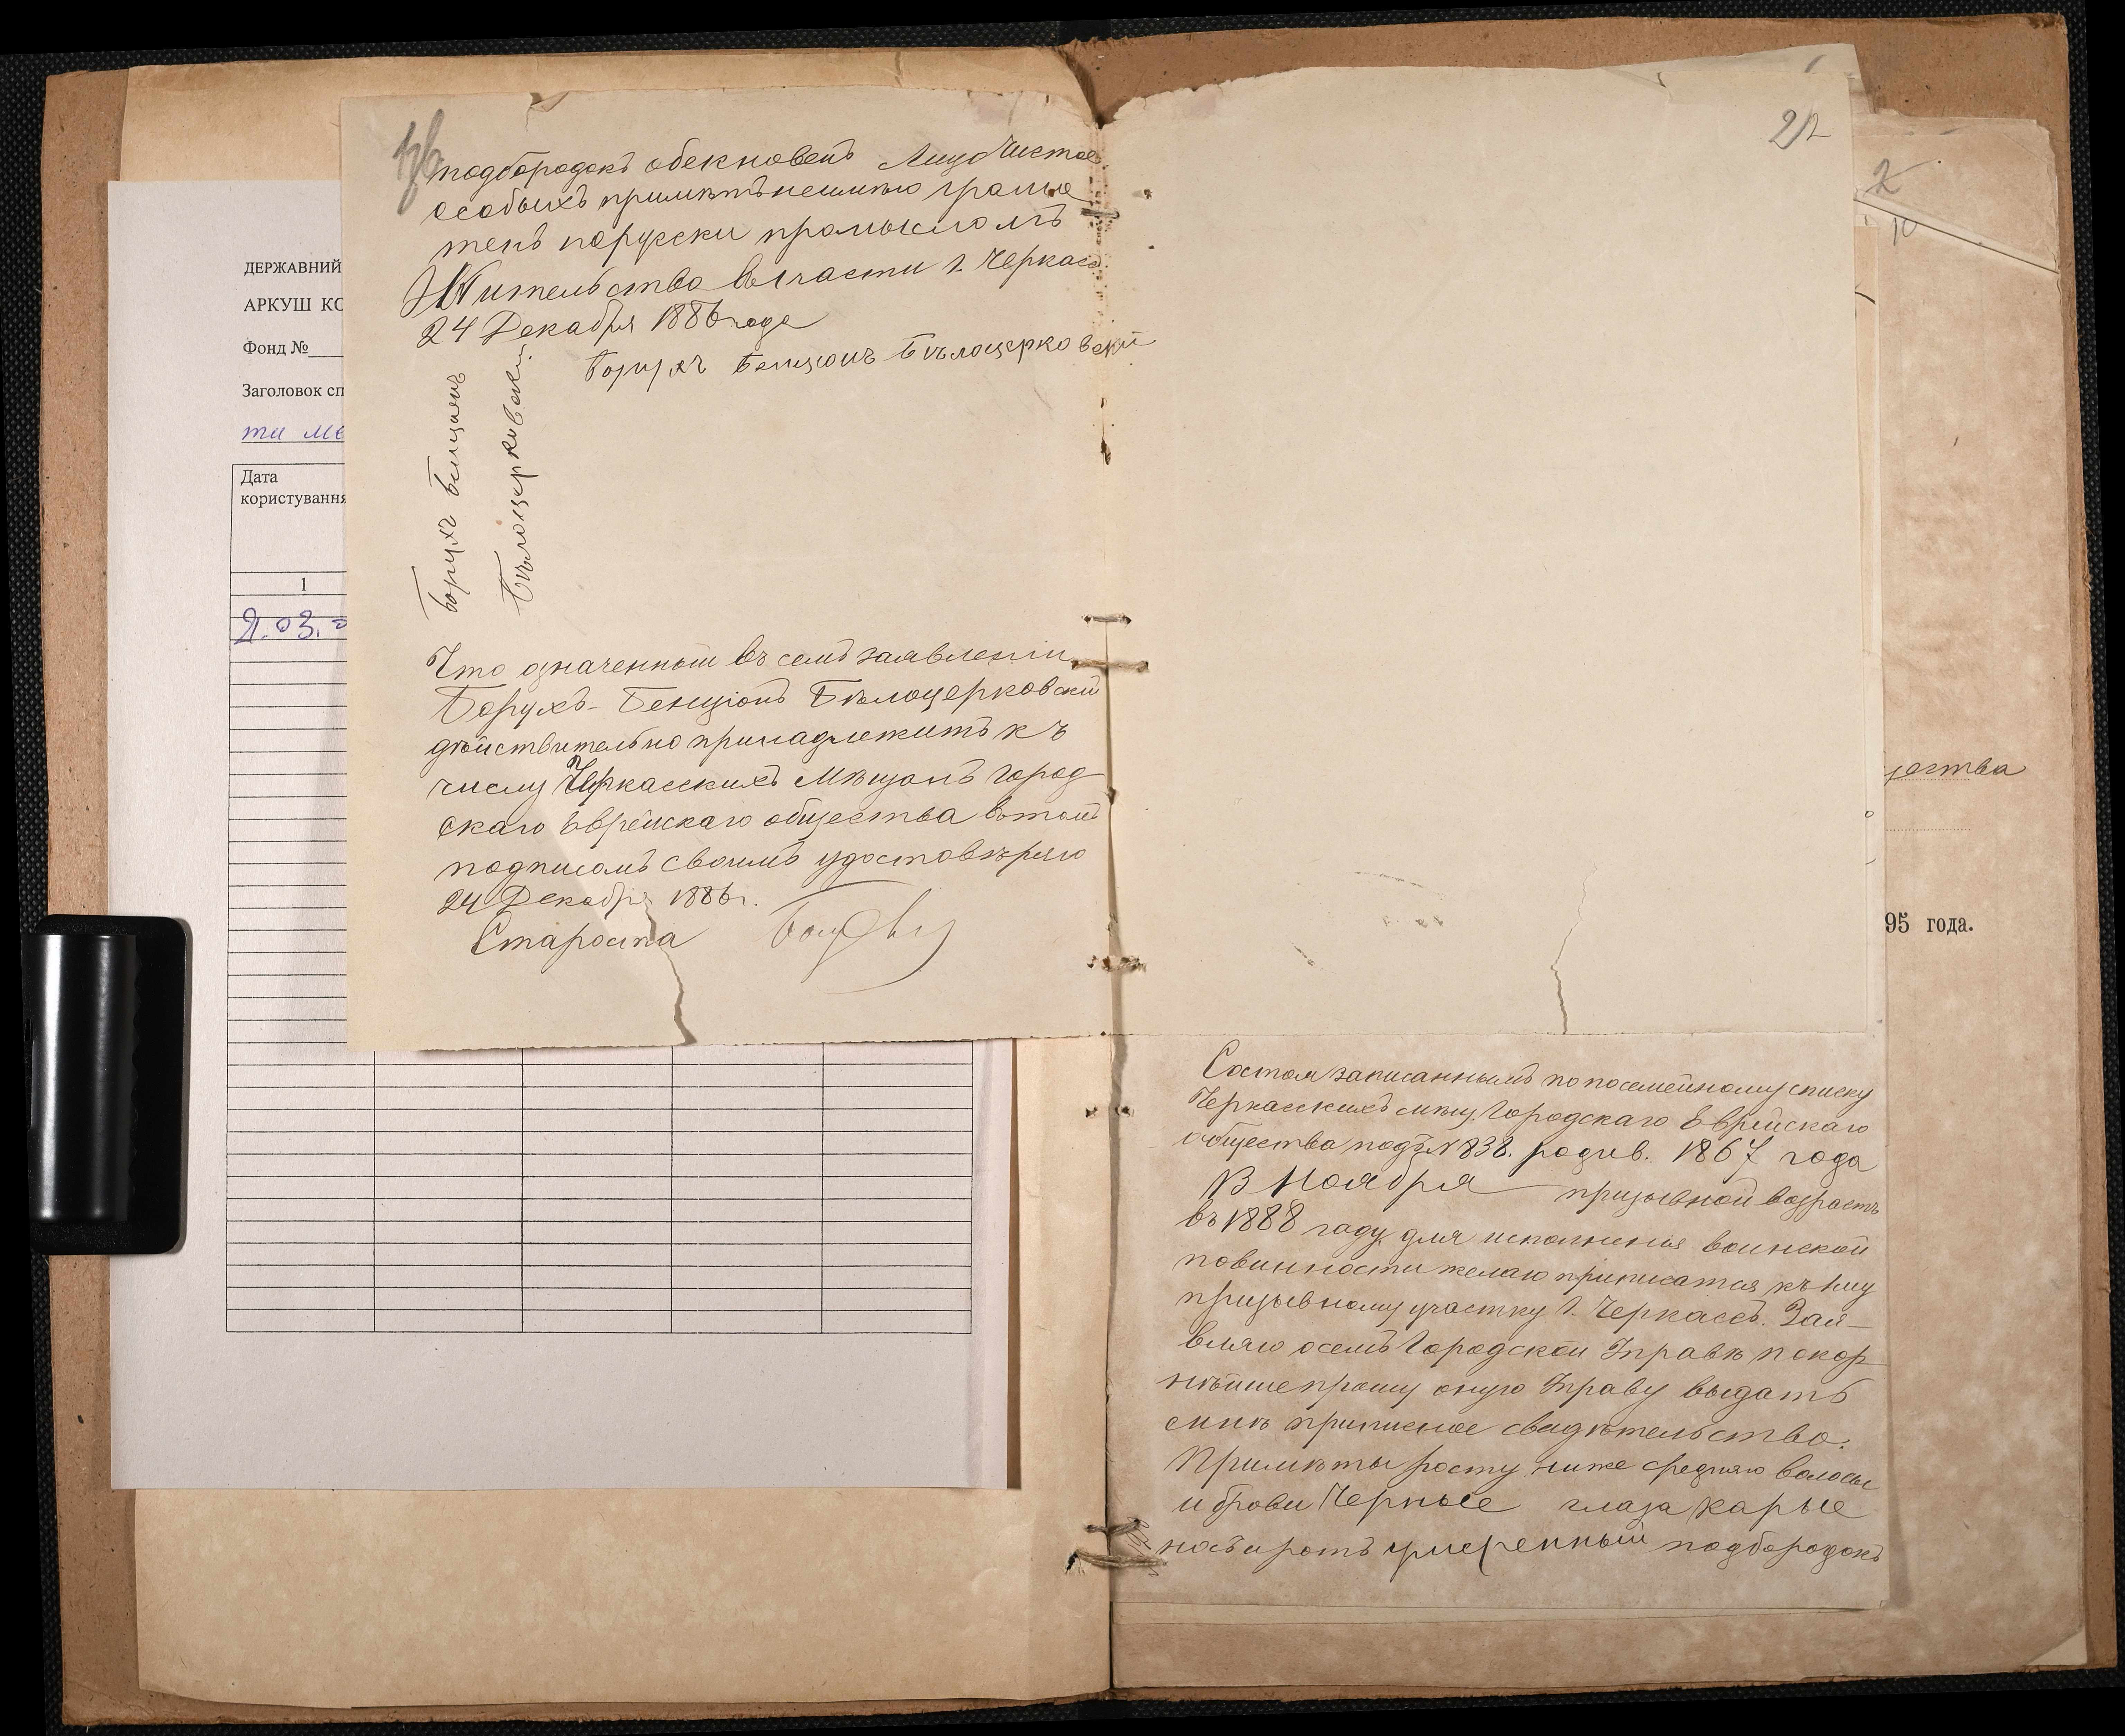 ДЕРЖАВНИЙ
АРКУШ КО
Фонд №
Заголовок сп
Дата
користування
1
подбородокъ обекновенъ Лицо Чистое
особыхъ приметъ неимею грамо
тенъ порусски промысломъ
Жительство в 1 части г. Черкасъ
24 Декабря 1886 года
Борухъ Бенцонъ Бѣлоцерковски
Борухъ Бенцонъ
Бѣлоцерковский
Что означенный въ семъ заявленiи
Борухъ-Бенцiонъ Бѣлоцерковскiй
дѣйствительно принадлежитъ къ
числу Черкасскихъ Мѣщанъ Город
скаго Еврейскаго общества въ томъ
подписомъ своимъ удостовѣряю
24 Декабря 1886 г.
Староста
2
Состоя записаннымъ по посемейному списку
Черкасскихъ мѣщ. Городскаго Еврейскаго
общества подъ № 838. родив. 1867 года
13 Ноября призывной возрастъ
въ 1888 году для исполненiя воинской
повинности желаю приписатся къ
призывному участку г. Черкассъ. Зая-
вляю осемъ Городской Управѣ покор
нѣйше прошу оную Управу выдать
мнѣ приписное свидѣтельство.
Примѣты росту ниже средняго волосы
и брови Черные глаза карые
носъ и ротъ умеренный подбородокъ
2
10
95 года.